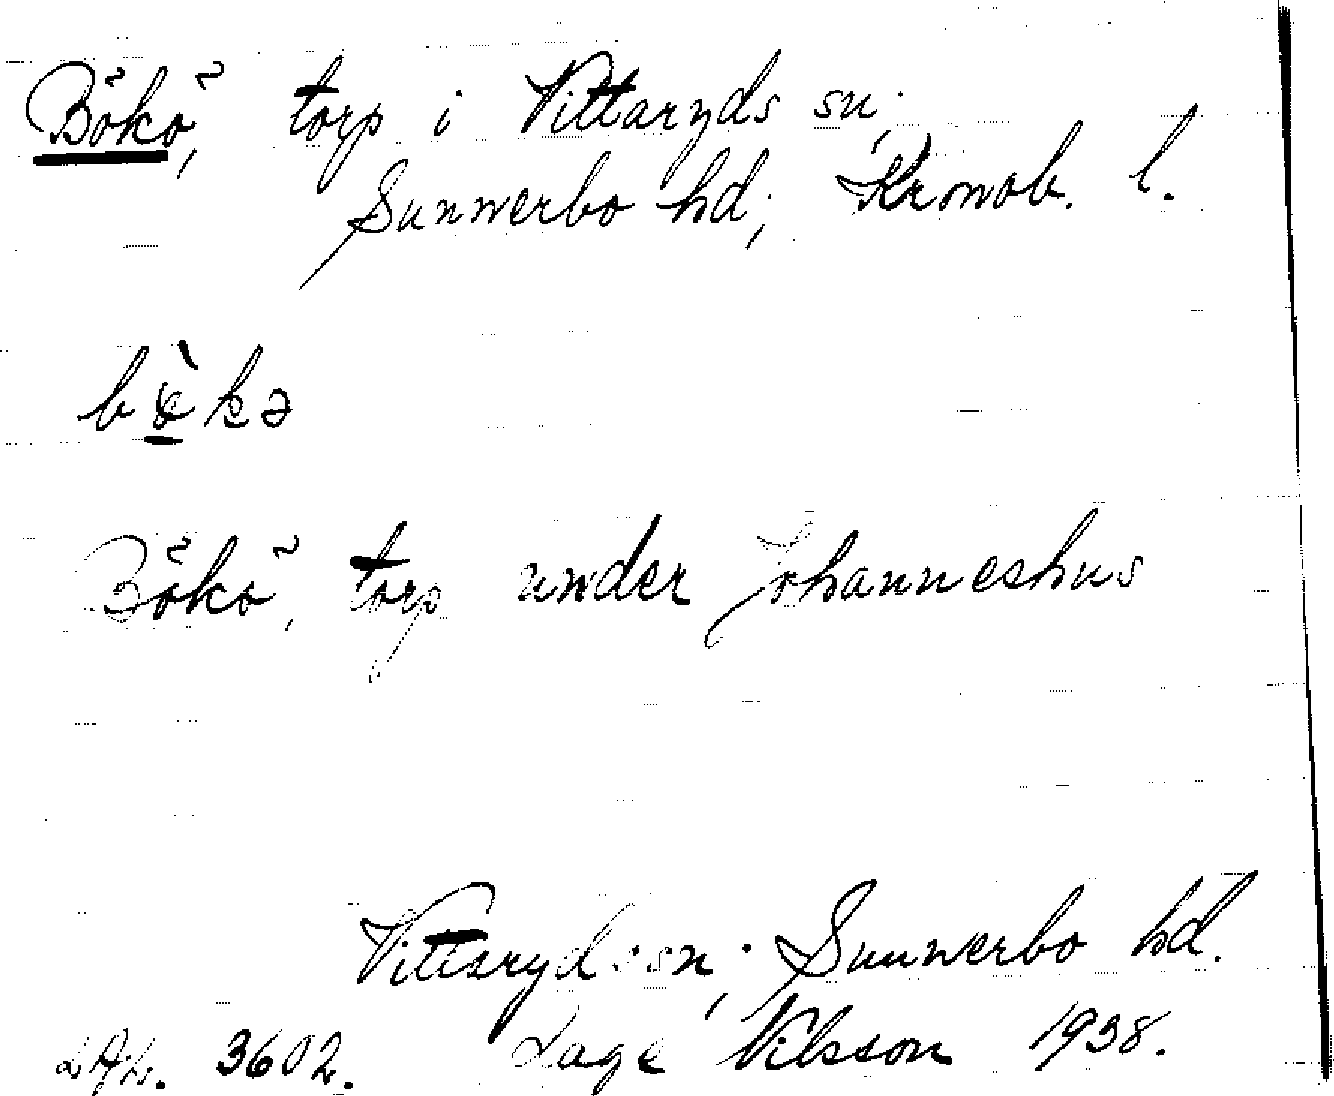 Bökö, torp i Vittaryds sn;
Sunnerbo hd; Kronob. l.
bø̀kə
Bökö, torp under Johanneshus
Vittaryds sn; Sunnerbo hd.
LAL. 3602. Lage Nilsson 1938.